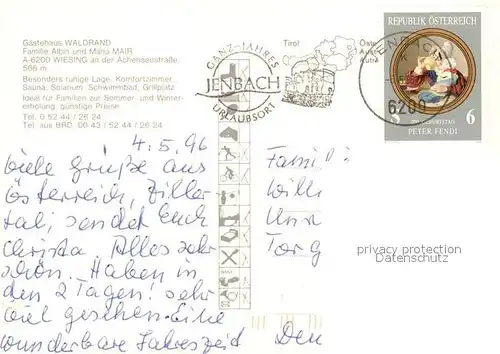 Gästehaus WALDRAND
Familie Albin und Maria MAIR
A-6200 WIESING an der Achenseestraße
566 m
Besonders ruhige Lage, Komfortzimmer,
Sauna, Solarium, Schwimmbad, Grillplatz
Ideal für Familien zur Sommer- und Winter-
erholung, günstige Preise
Tel. 0 52 44 / 26 24
Tel. aus BRD 00 43 / 52 44 / 26 24
GANZ-JAHRES
JENBACH
URLAUBSORT
Tirol
6200
REPUBLIK ÖSTERREICH
6
PETER FENDI
6
4.5.96
Viele Grüße aus
Österreich, Ziller-
tal, sendet Euch
Christa. Alles sehr
schön. Haben in
den 2 Tagen! sehr
viel gesehen. Eine
wunderbare Jahreszeit
Famil
Willi
Torg
privacy protection
Datenschutz